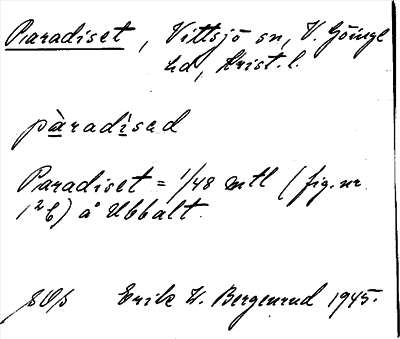 Paradiset, Vittsjö sn, V. Göinge
hd, Krist. l.
pàradised
Paradiset = 1/48 mtl (fig. nr
1²b) å Ubbalt.
Erik W. Bergenrud 1945.